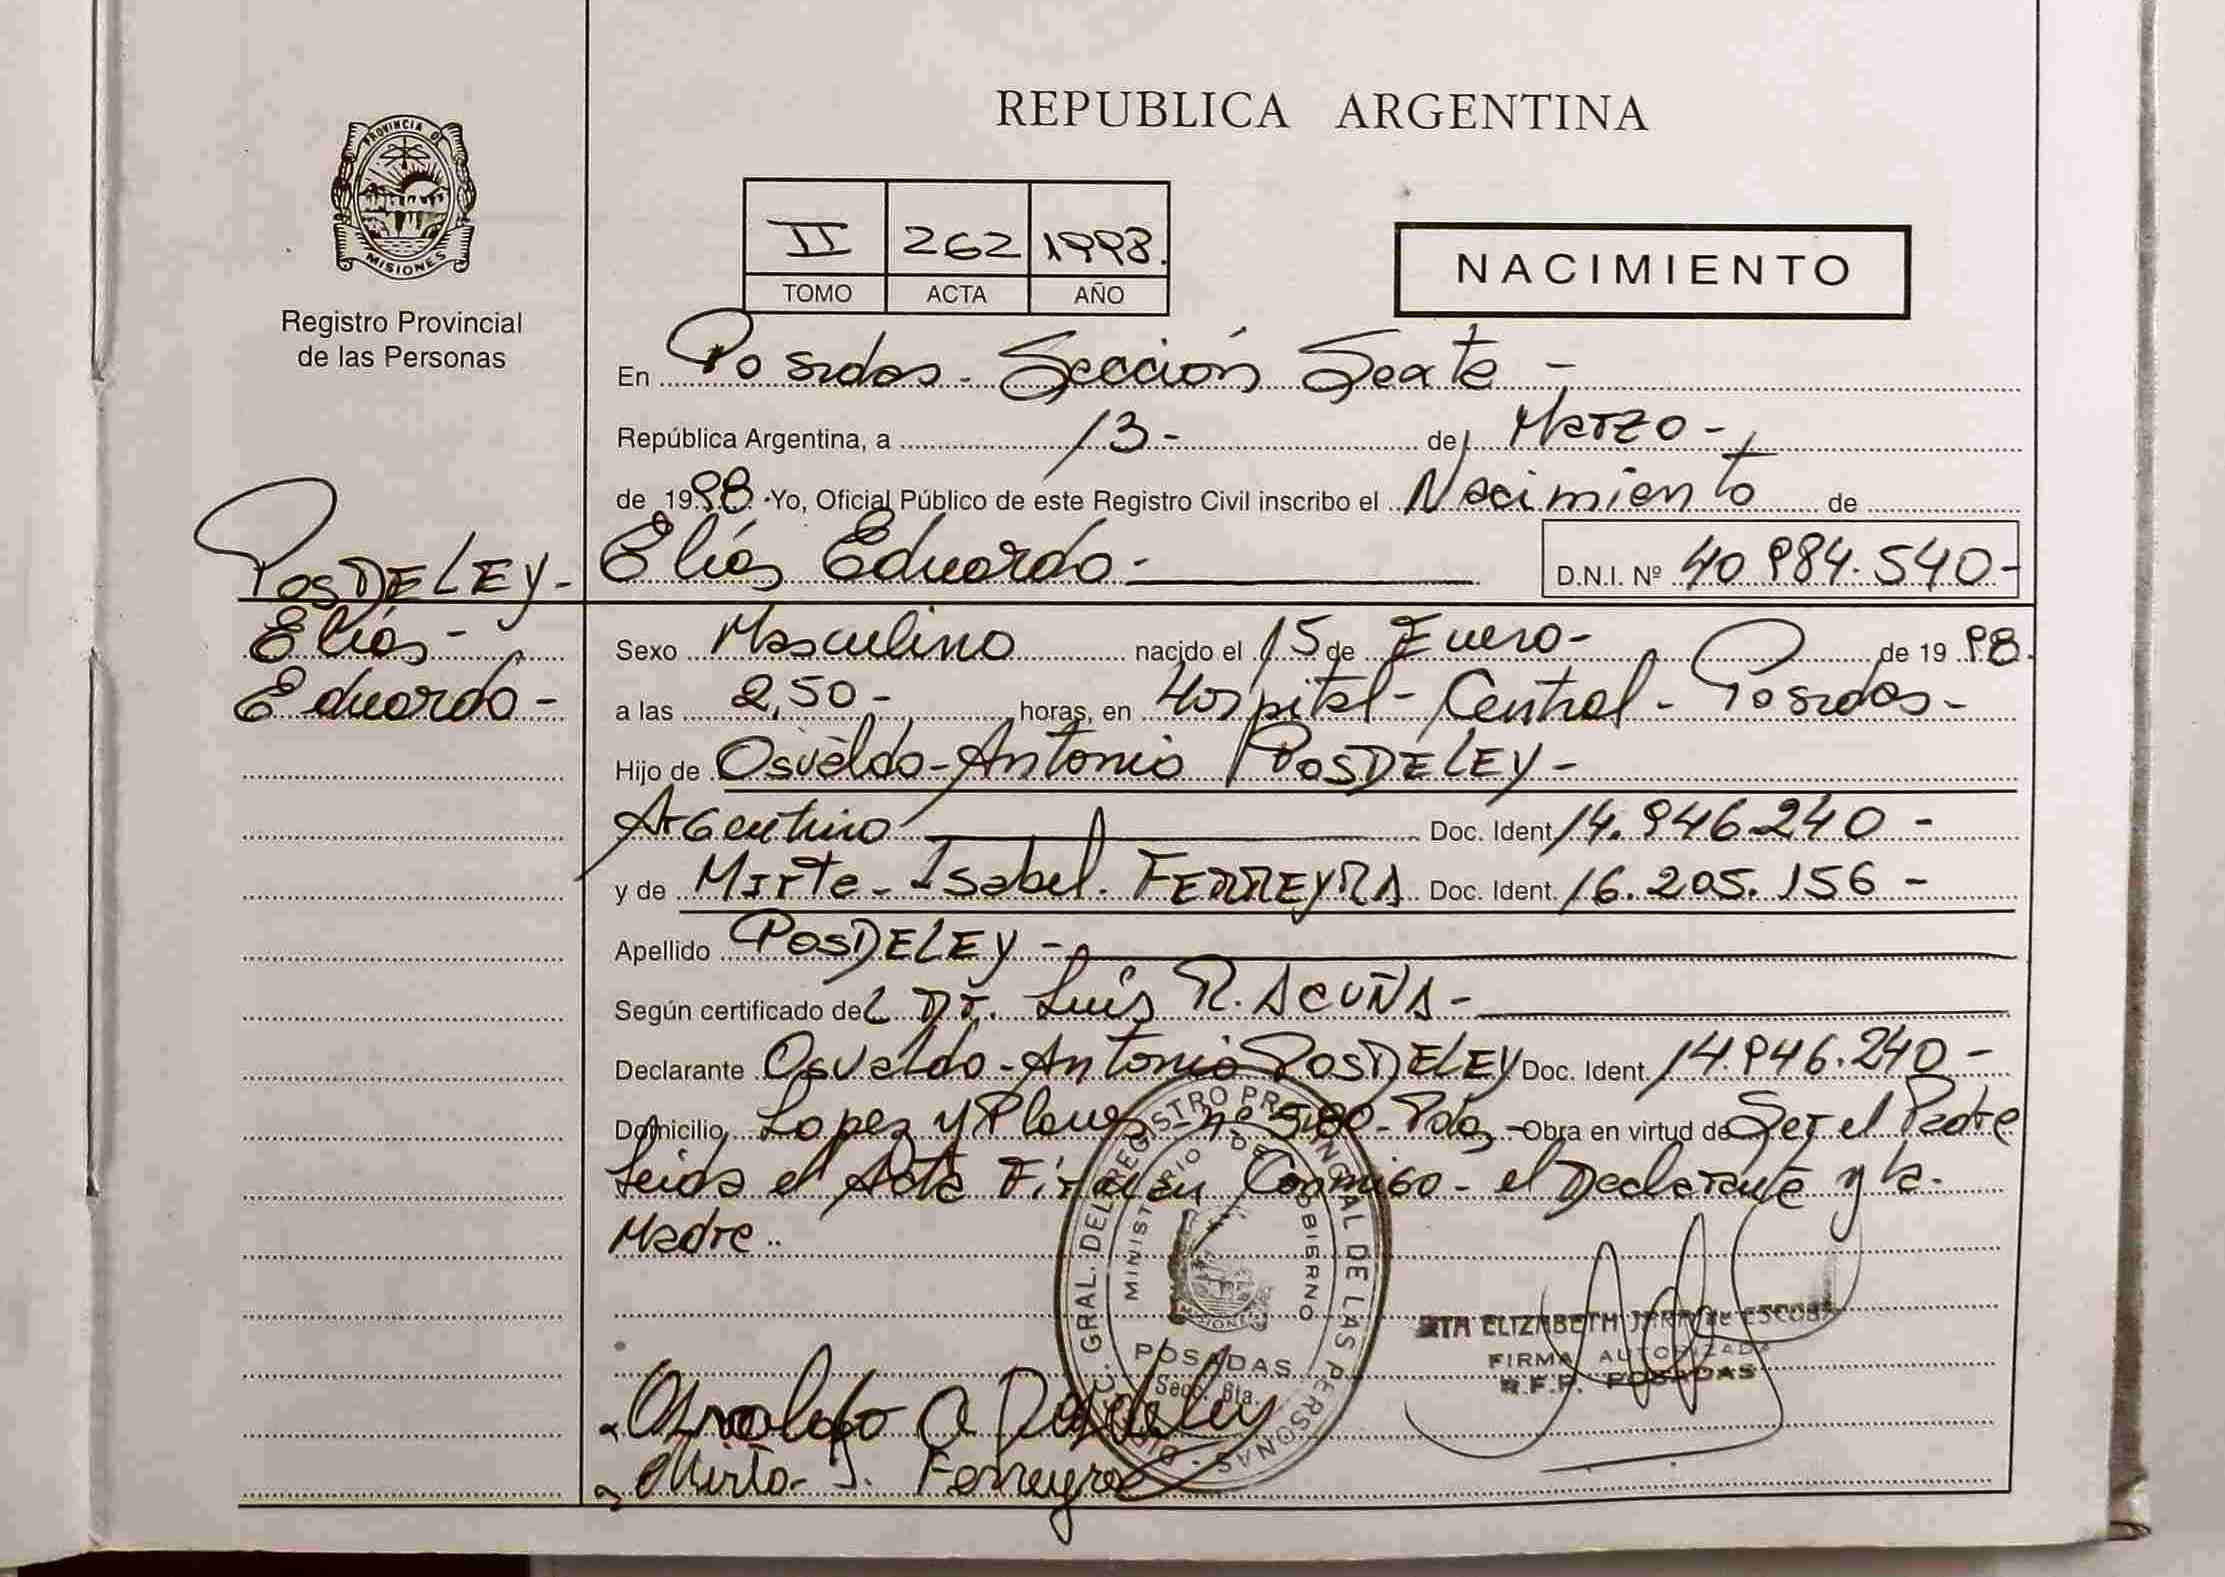 PROVINCIA DE
MISIONES
Registro Provincial
de las Personas
REPUBLICA ARGENTINA
II 262 1998.
TOMO ACTA AÑO
NACIMIENTO
En Posadas - Sección Sexta -
República Argentina, a 13 - de Marzo -
de 1998 - Yo, Oficial Público de este Registro Civil inscribo el Nacimiento de
POSDELEY -
Elías -
Eduardo -
Elías Eduardo - D.N.I. Nº 40.984.540 -
Sexo Masculino nacido el 15 de Enero - de 1998.
a las 2,50 - horas, en Hospital - Central - Posadas -
Hijo de Osvaldo - Antonio POSDELEY -
Argentino Doc. Ident. 14.946.240 -
y de Mirta - Isabel. FERREYRA Doc. Ident. 16.205.156 -
Apellido POSDELEY -
Según certificado del Dr. Luis R. ACUÑA -
Declarante Osvaldo - Antonio POSDELEY Doc. Ident. 14.946.240 -
Domicilio Lopez y Planes Nº 5180 - Pdas - Obra en virtud de Ser el Padre
Leida el Acta Firman Conmigo - el Declarante y la -
Madre ..
DIRECC. GRAL. DEL REGISTRO PROVINCIAL DE LAS PERSONAS -
MINISTERIO DE GOBIERNO
MISIONES
POSADAS
Secc. 6ta.
ELIZABETH de ESCOBAR
FIRMA AUTORIZADA
POSADAS
Osvaldo A Posdeley
Mirta I. Ferreyra